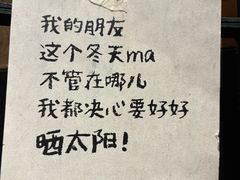 我的朋友
这个冬天ma
不管在哪儿
我都决心要好好
晒太阳!